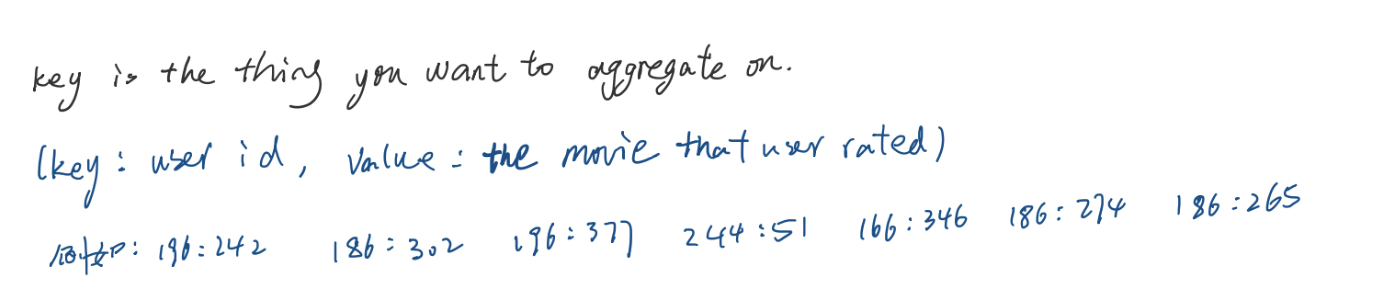 key is the thing you want to aggregate on.
(key: user id, value: the movie that user rated)
例如: 196:242 186:302 196:377 244:51 166:346 186:274 186:265